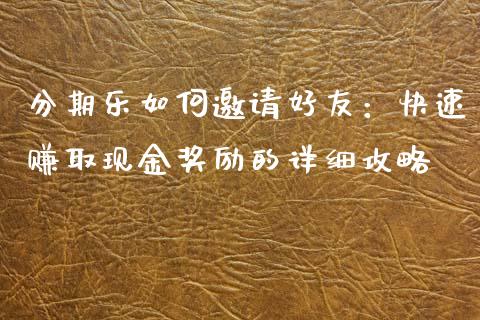 分期乐如何邀请好友：快速
赚取现金奖励的详细攻略